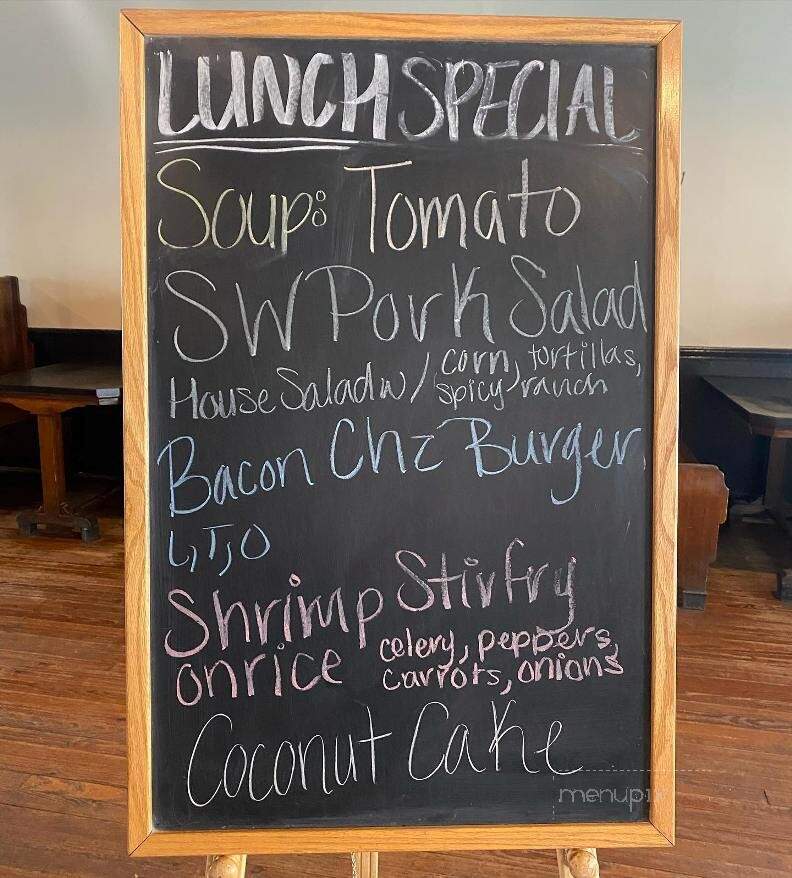 LUNCH SPECIAL
Soup: Tomato
SW Pork Salad
House Salad w/ corn, tortillas,
spicy ranch
Bacon Chz Burger
L, T, O
Shrimp Stirfry
on rice celery, peppers,
carrots, onions
Coconut Cake
menupix